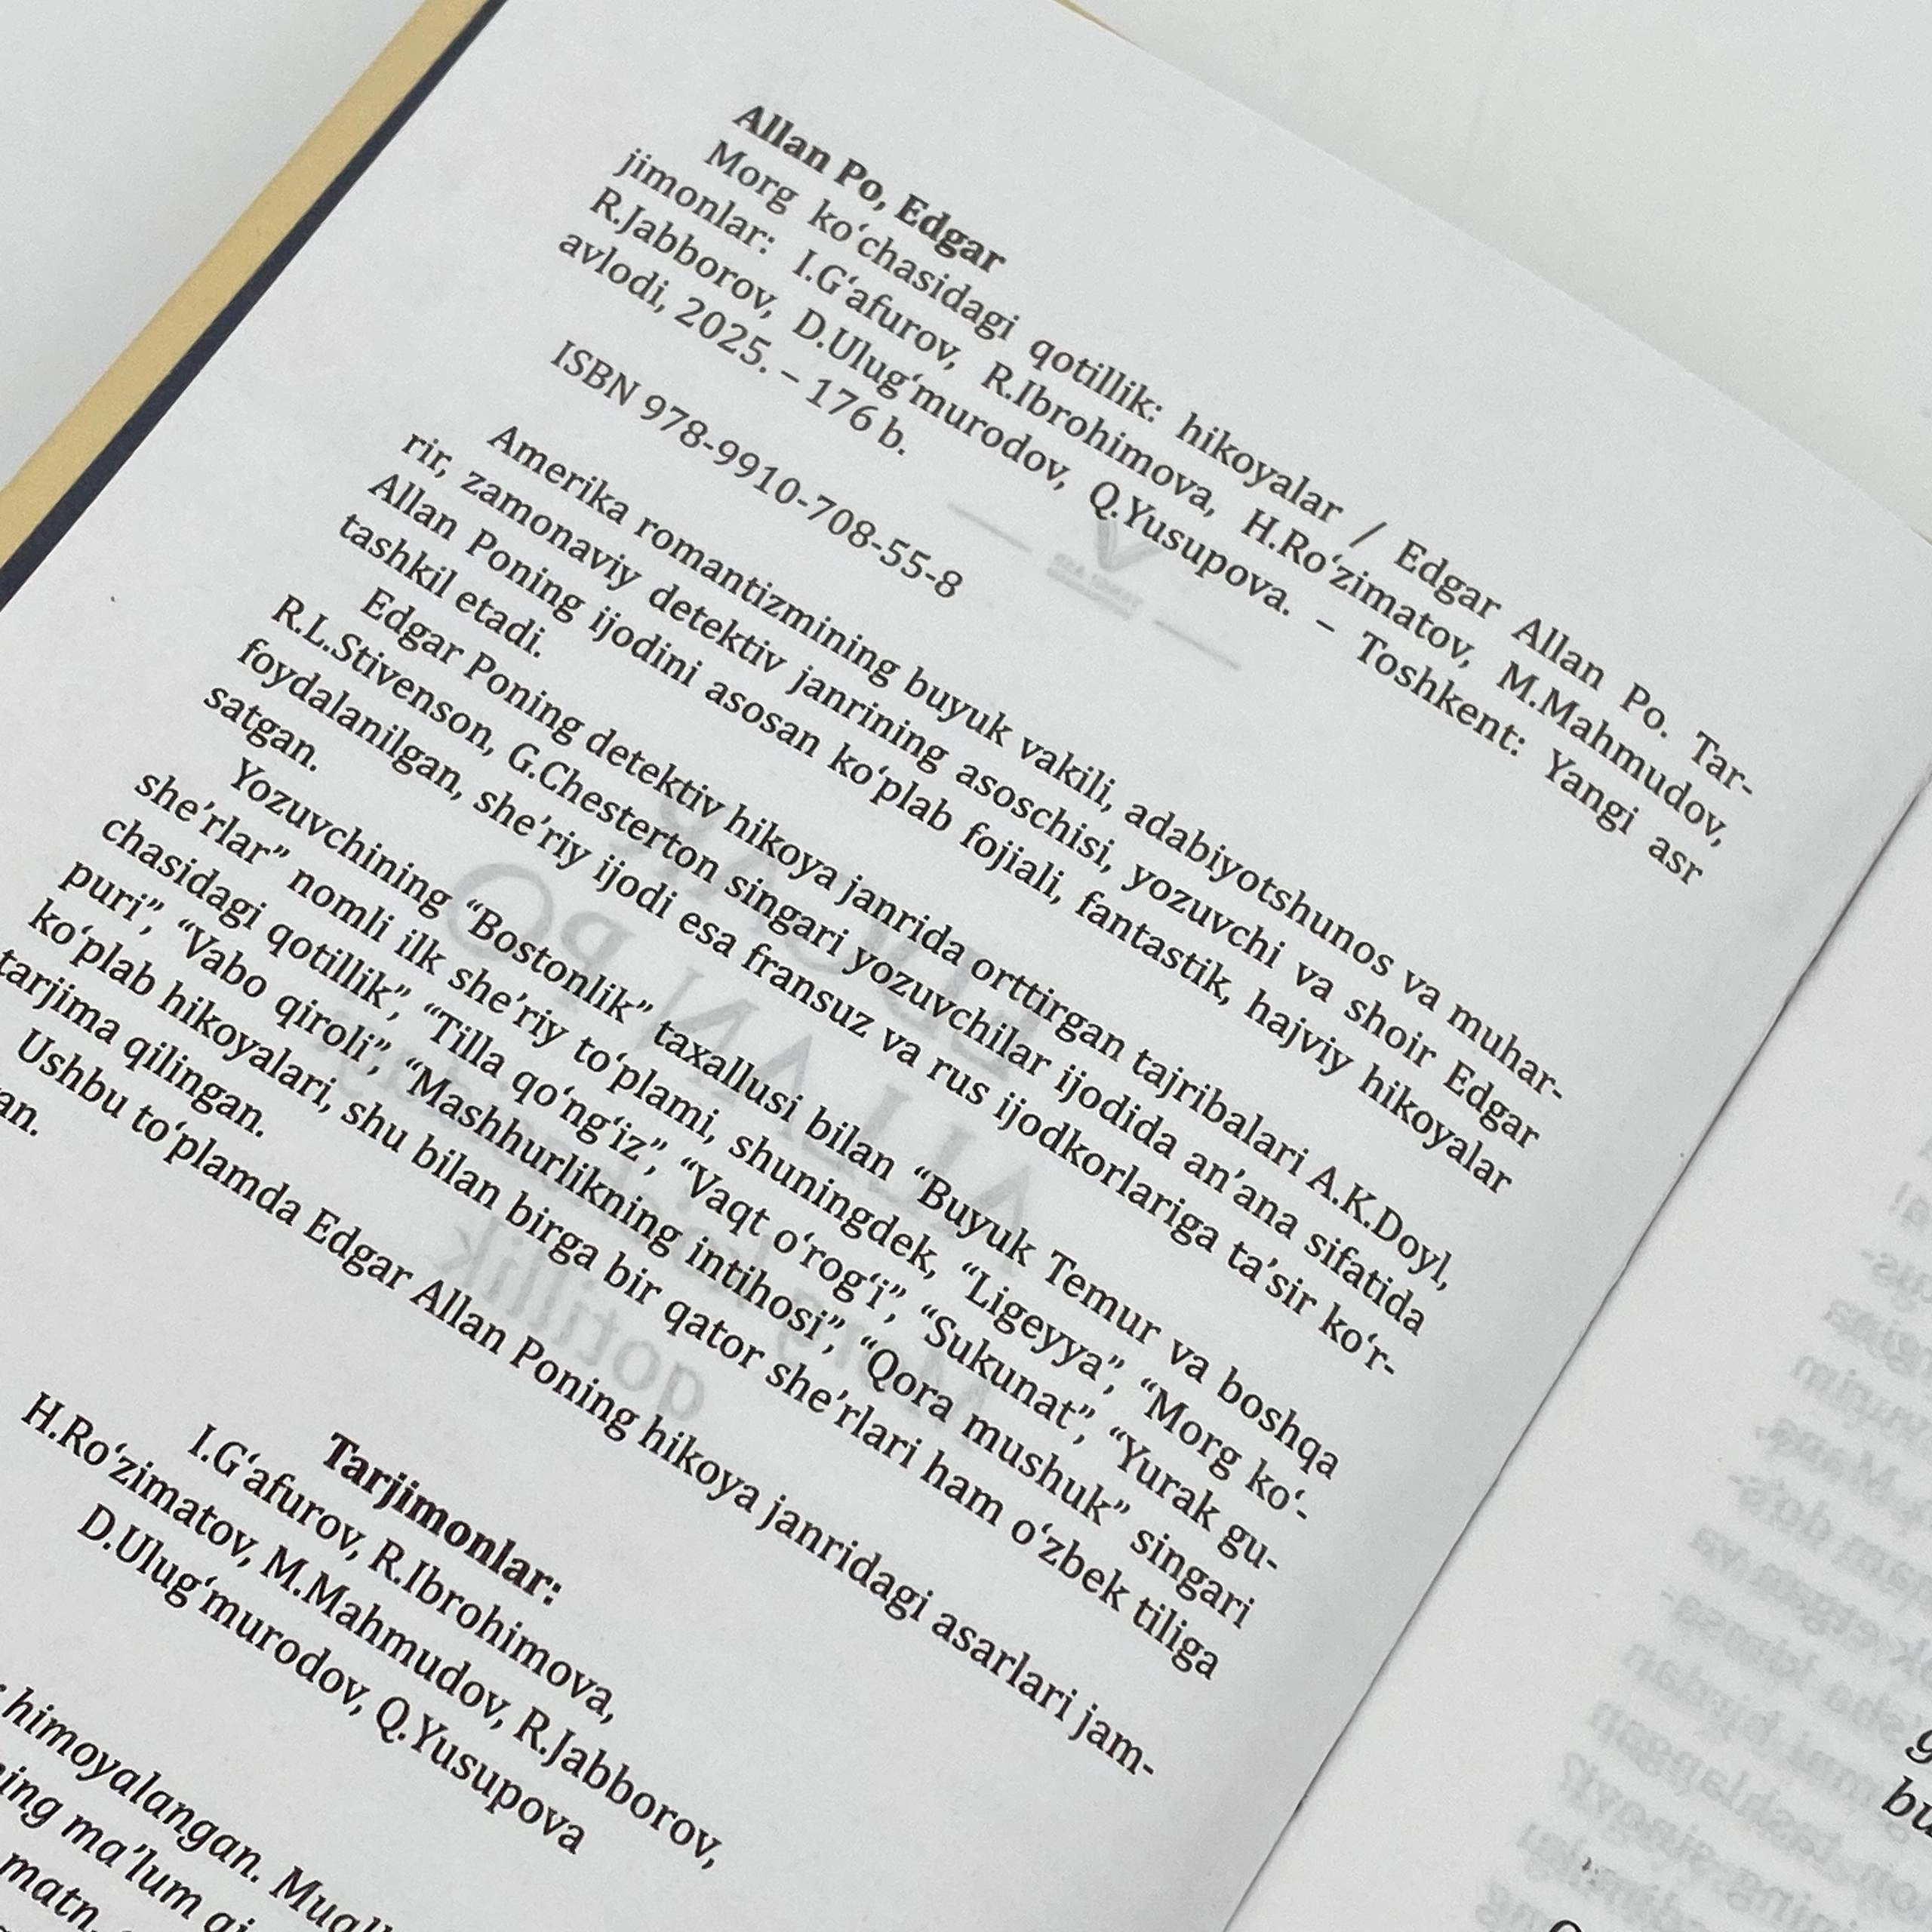 Allan Po, Edgar
Morg ko‘chasidagi qotillik: hikoyalar / Edgar Allan Po. Tar-
jimonlar: I.G‘afurov, R.Ibrohimova, H.Ro‘zimatov, M.Mahmudov,
R.Jabborov, D.Ulug‘murodov, Q.Yusupova. – Toshkent: Yangi asr
avlodi, 2025. – 176 b.
ISBN 978-9910-708-55-8
Amerika romantizmining buyuk vakili, adabiyotshunos va muhar-
rir, zamonaviy detektiv janrining asoschisi, yozuvchi va shoir Edgar
Allan Poning ijodini asosan ko‘plab fojiali, fantastik, hajviy hikoyalar
tashkil etadi.
Edgar Poning detektiv hikoya janrida orttirgan tajribalari A.K.Doyl,
R.L.Stivenson, G.Chesterton singari yozuvchilar ijodida an’ana sifatida
foydalanilgan, she’riy ijodi esa fransuz va rus ijodkorlariga ta’sir ko‘r-
satgan.
Yozuvchining “Bostonlik” taxallusi bilan “Buyuk Temur va boshqa
she’rlar” nomli ilk she’riy to‘plami, shuningdek, “Ligeyya”, “Morg ko‘-
chasidagi qotillik”, “Tilla qo‘ng‘iz”, “Vaqt o‘rog‘i”, “Sukunat”, “Yurak gu-
puri”, “Vabo qiroli”, “Mashhurlikning intihosi”, “Qora mushuk” singari
ko‘plab hikoyalari, shu bilan birga bir qator she’rlari ham o‘zbek tiliga
tarjima qilingan.
Ushbu to‘plamda Edgar Allan Poning hikoya janridagi asarlari jam-
an.
Tarjimonlar:
I.G‘afurov, R.Ibrohimova,
H.Ro‘zimatov, M.Mahmudov, R.Jabborov,
D.Ulug‘murodov, Q.Yusupova
himoyalangan.
ma’lum
matn.